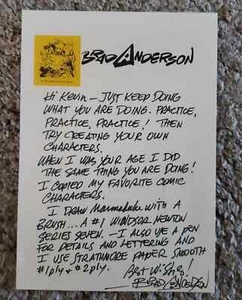 BRAD ANDERSON
Hi Kevin – JUST KEEP DOING
WHAT YOU ARE DOING. PRACTICE,
PRACTICE, PRACTICE! THEN
TRY CREATING YOUR OWN
CHARACTERS.
WHEN I WAS YOUR AGE I DID
THE SAME THING YOU ARE DOING!
I COPIED MY FAVORITE COMIC
CHARACTERS.
I DRAW Marmaduke WITH A
BRUSH... A #1 WINDSOR NEWTON
SERIES SEVEN – I ALSO USE A PEN
FOR DETAILS AND LETTERING AND
I USE STRATHMORE PAPER SMOOTH
#1 ply & #2 ply.
BEST WISHES,
BRAD ANDERSON